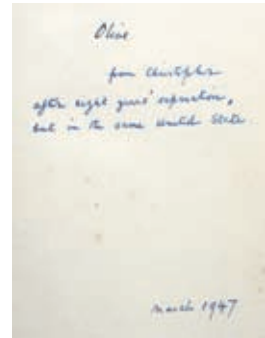 Olive
from Christopher
after eight years' separation,
but in the same United State
March 1947